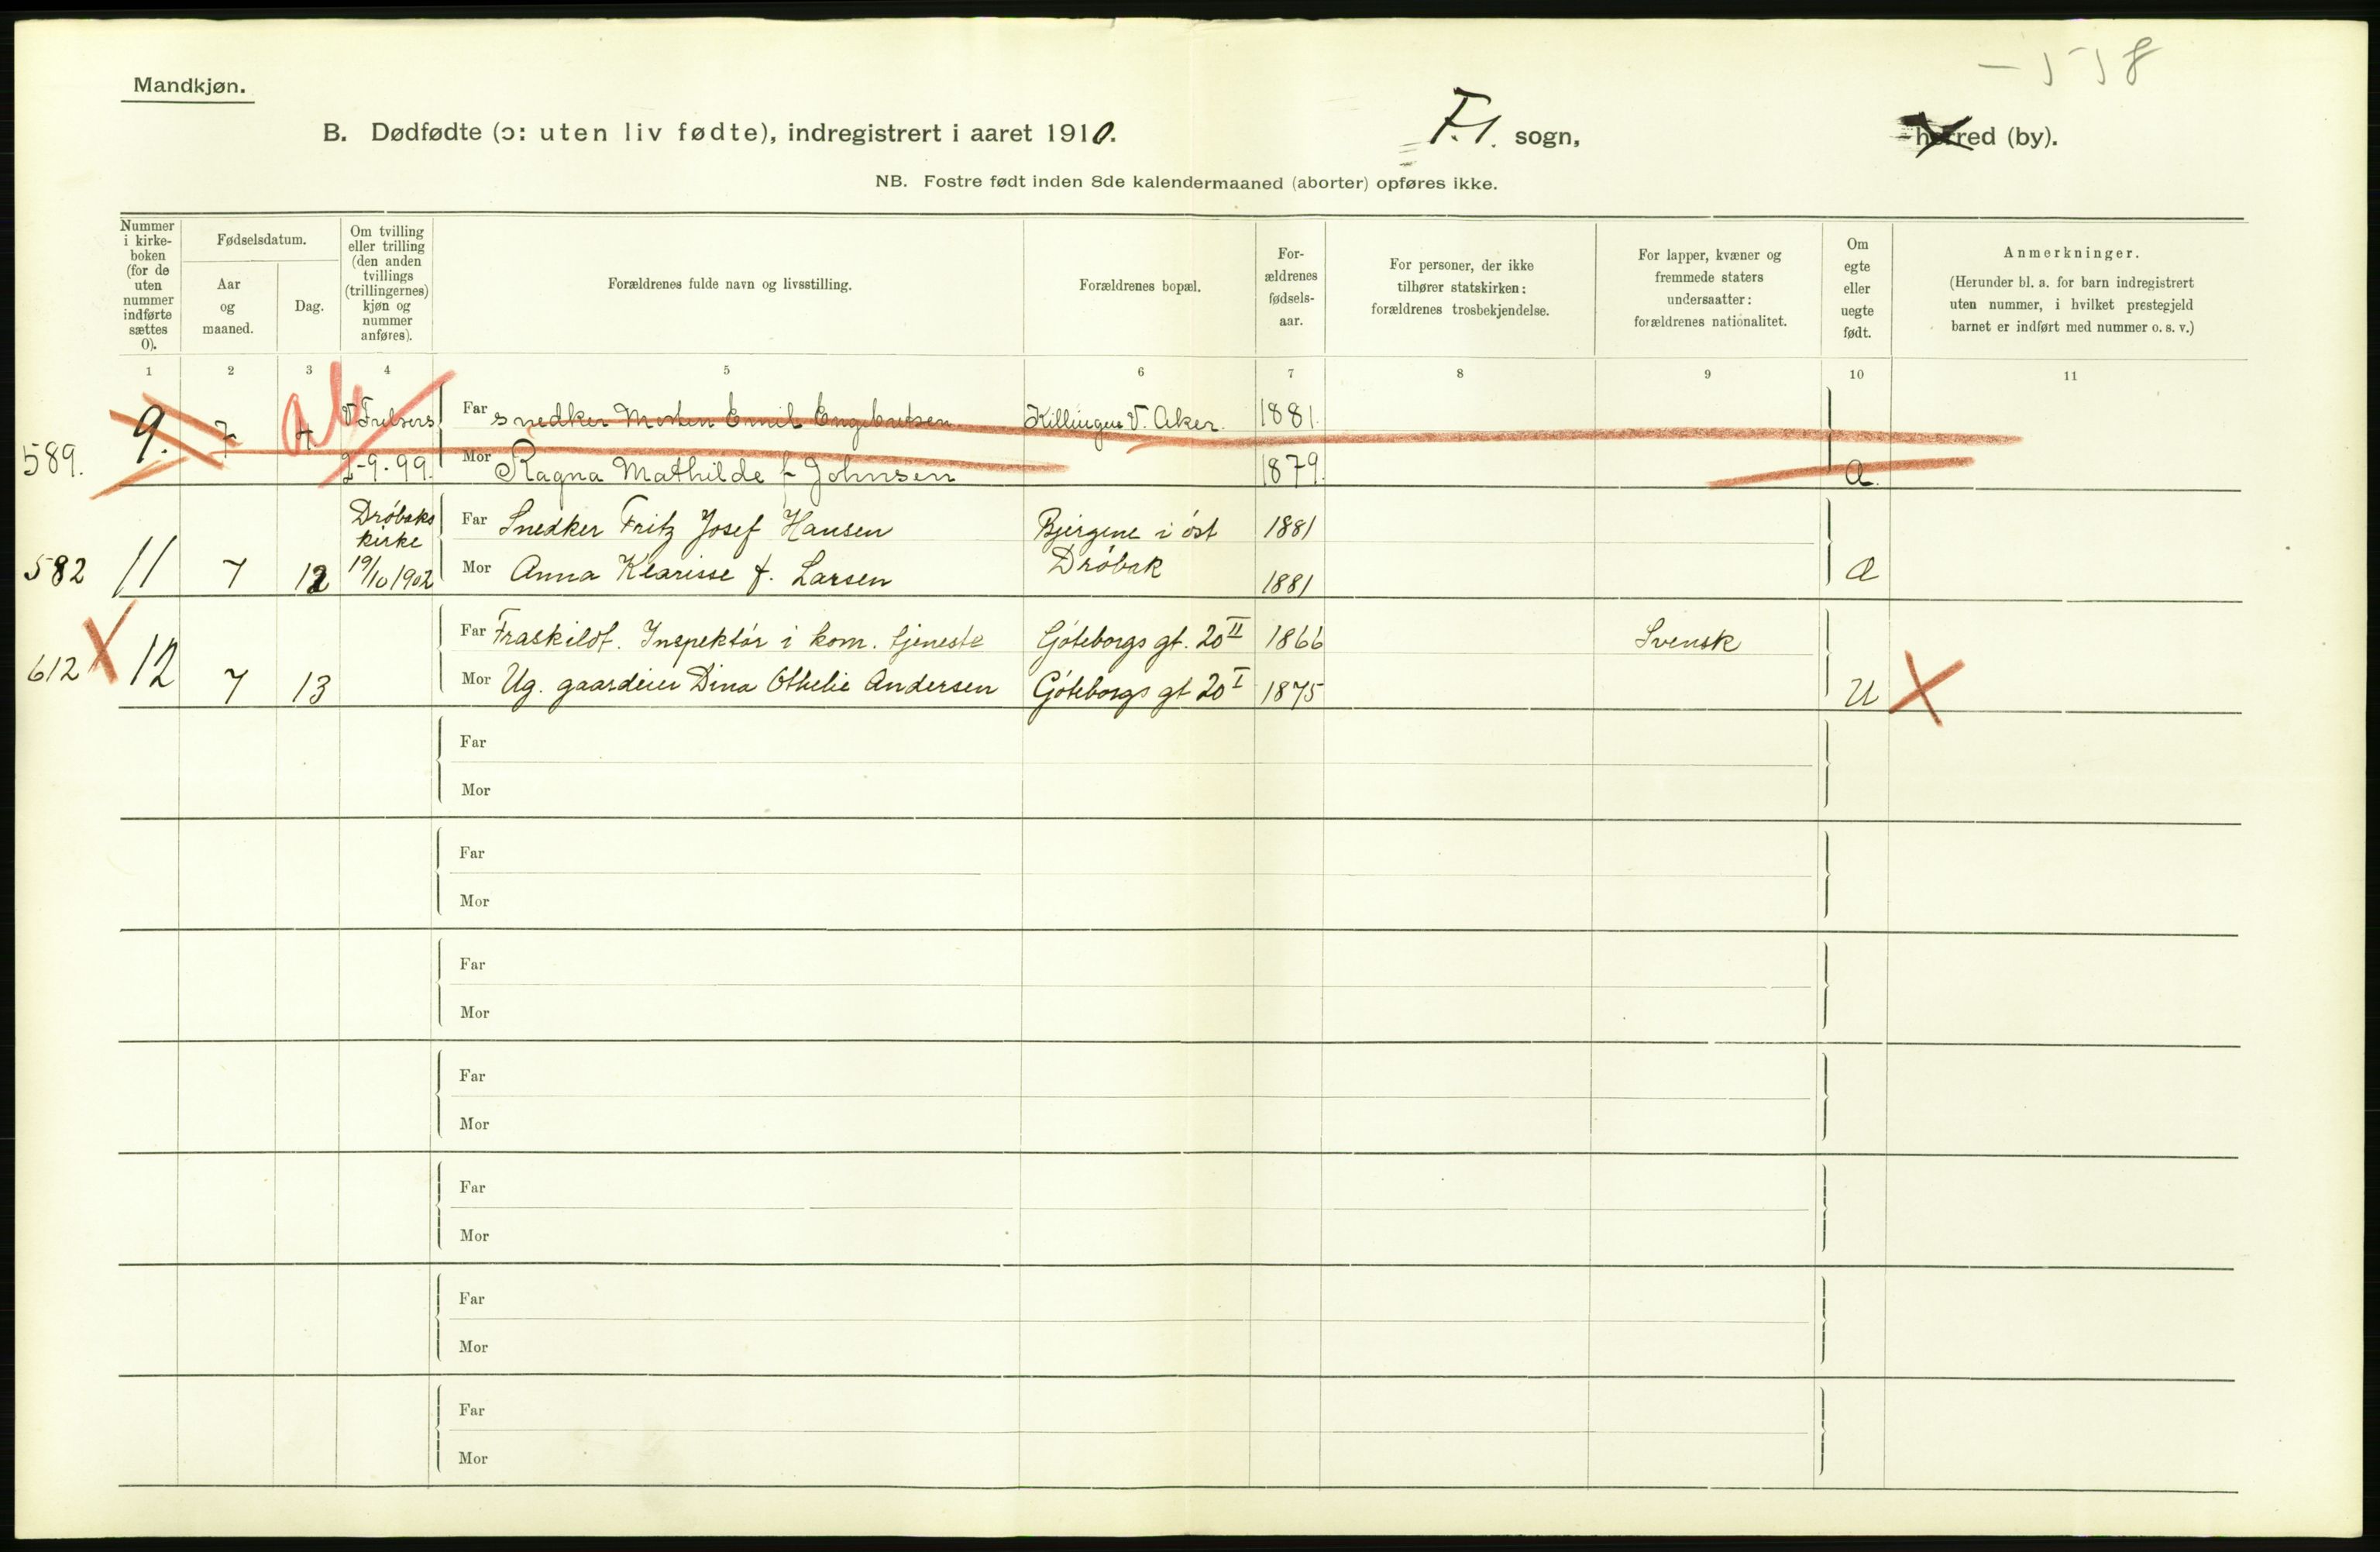 Mandkjøn.
B. Dødfødte (ɔ: uten liv fødte), indregistrert i aaret 1910.
F.1. sogn,
herred (by).
NB. Fostre født inden 8de kalendermaaned (aborter) opføres ikke.
Nummer i kirke-boken (for de uten nummer indførte sættes 0).
Fødselsdatum.
Aar og maaned.
Dag.
Om tvilling eller trilling (den anden tvillings (trillingernes) kjøn og nummer anføres).
Forældrenes fulde navn og livsstilling.
Forældrenes bopæl.
For-ældrenes fødsels-aar.
For personer, der ikke tilhører statskirken: forældrenes trosbekjendelse.
For lapper, kvæner og fremmede staters undersaatter: forældrenes nationalitet.
Om egte eller uegte født.
Anmerkninger.
(Herunder bl. a. for barn indregistrert uten nummer, i hvilket prestegjeld barnet er indført med nummer o. s. v.)
1 2 3 4 5 6 7 8 9 10 11
589. 9. 7 4 V Frelsers Far snedker Morten Emil Engebretsen Killingen V. Aker. 1881.
2-9-99. Mor Ragna Mathilde f Johnsen 1879. Æ.
Drøbaks
kirke Far Snedker Fritz Josef Hansen Bjergene i øst 1881
582 11 7 12 19/10 1902 Mor Anna Klarisse f. Larsen Drøbak 1881 Æ
Far Fraskildt. Inspektør i kom. tjeneste Göteborgs gt. 20 II 1866 Svensk
612 X 12 7 13 Mor Ug. gaardeier Dina Othelie Andersen Göteborgs gt 20 I 1875 U X
Far
Mor
Far
Mor
Far
Mor
Far
Mor
Far
Mor
Far
Mor
Far
Mor